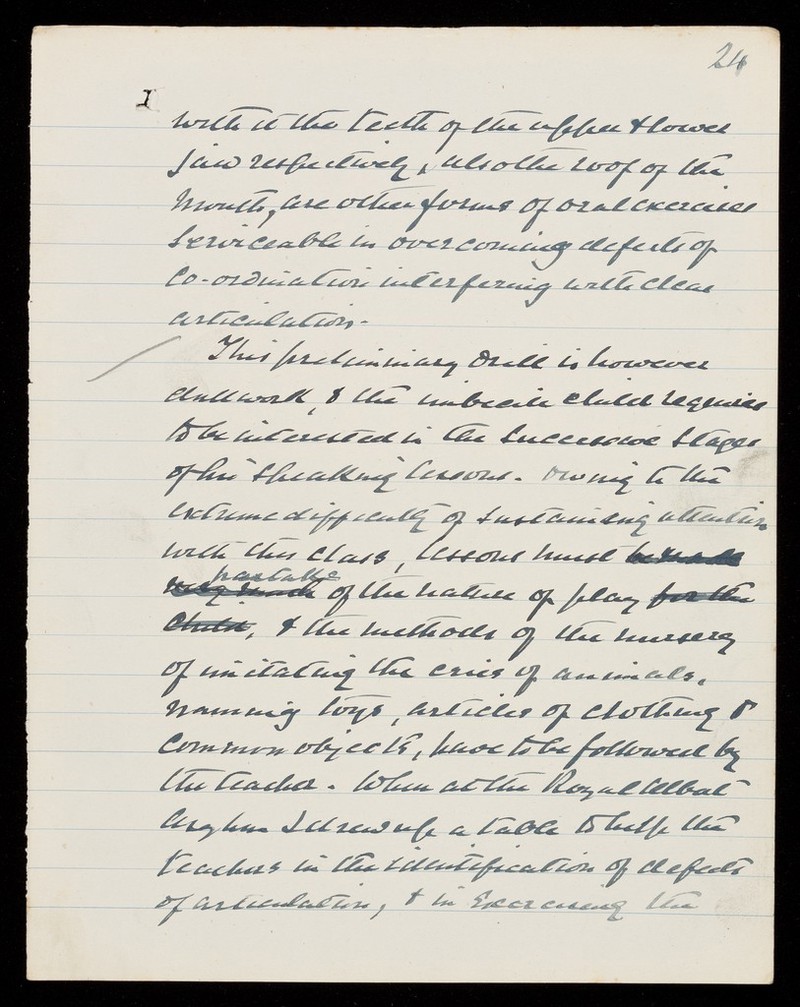 24
I
with it the teeth of the upper & lower
jaw respectively, also the roof of the
mouth, are other forms of oral exercises
serviceable in overcoming defects of
co-ordination interfering with clear
articulation.
This preliminary drill is however
dull work, & the imbecile child requires
to be interested in the successive stages
of his speaking lessons. Owing to the
extreme difficulty of sustaining attention
with this class, lessons must be made
partake
very much of the nature of play for the
child, & the methods of the nursery
of imitating the cries of animals,
naming toys, articles of clothing &
common objects, have to be followed by
the teacher. When at the Royal Albert
Asylum I drew up a table to help the
teachers in the identification of defects
of articulation, & in exercising the